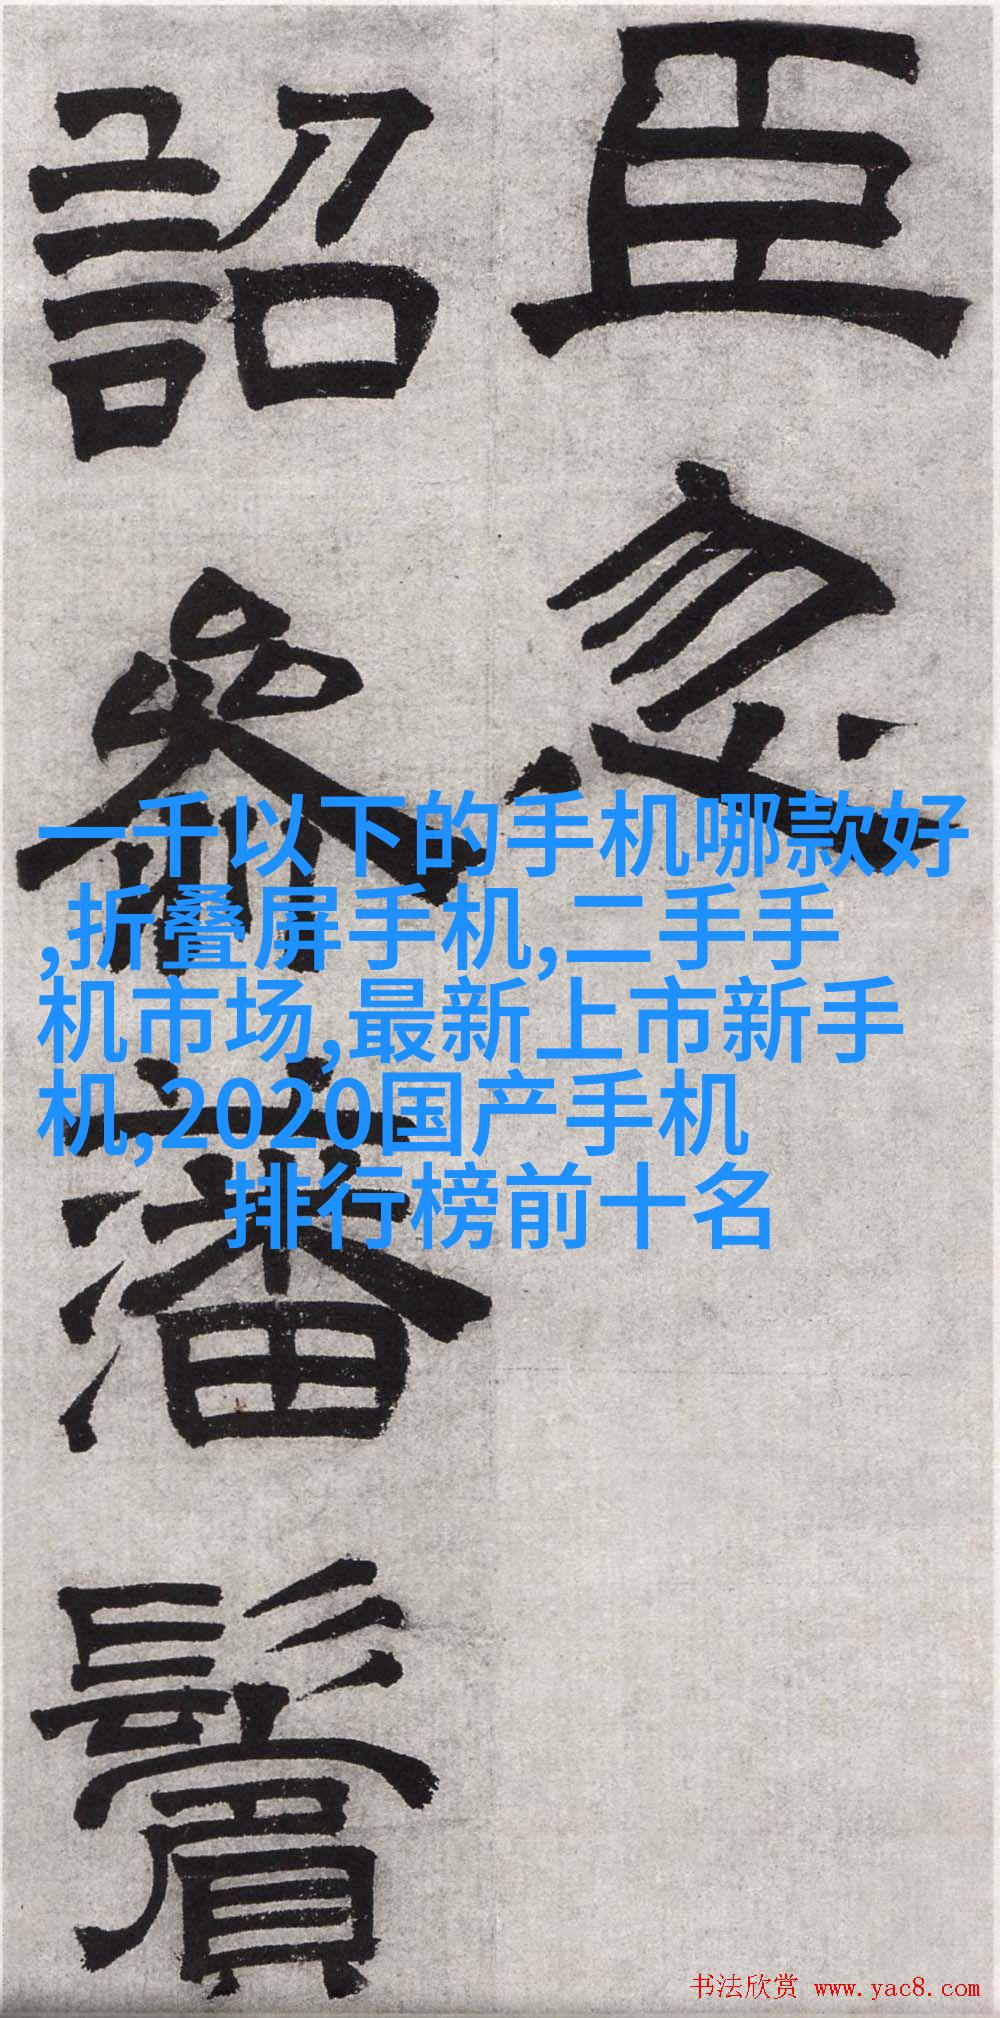 臣忽
詔參潘鬢
一千以下的手机哪款好
,折叠屏手机,二手手
机市场,最新上市新手
机,2020国产手机
排行榜前十名
书法欣赏 www.yac8.com